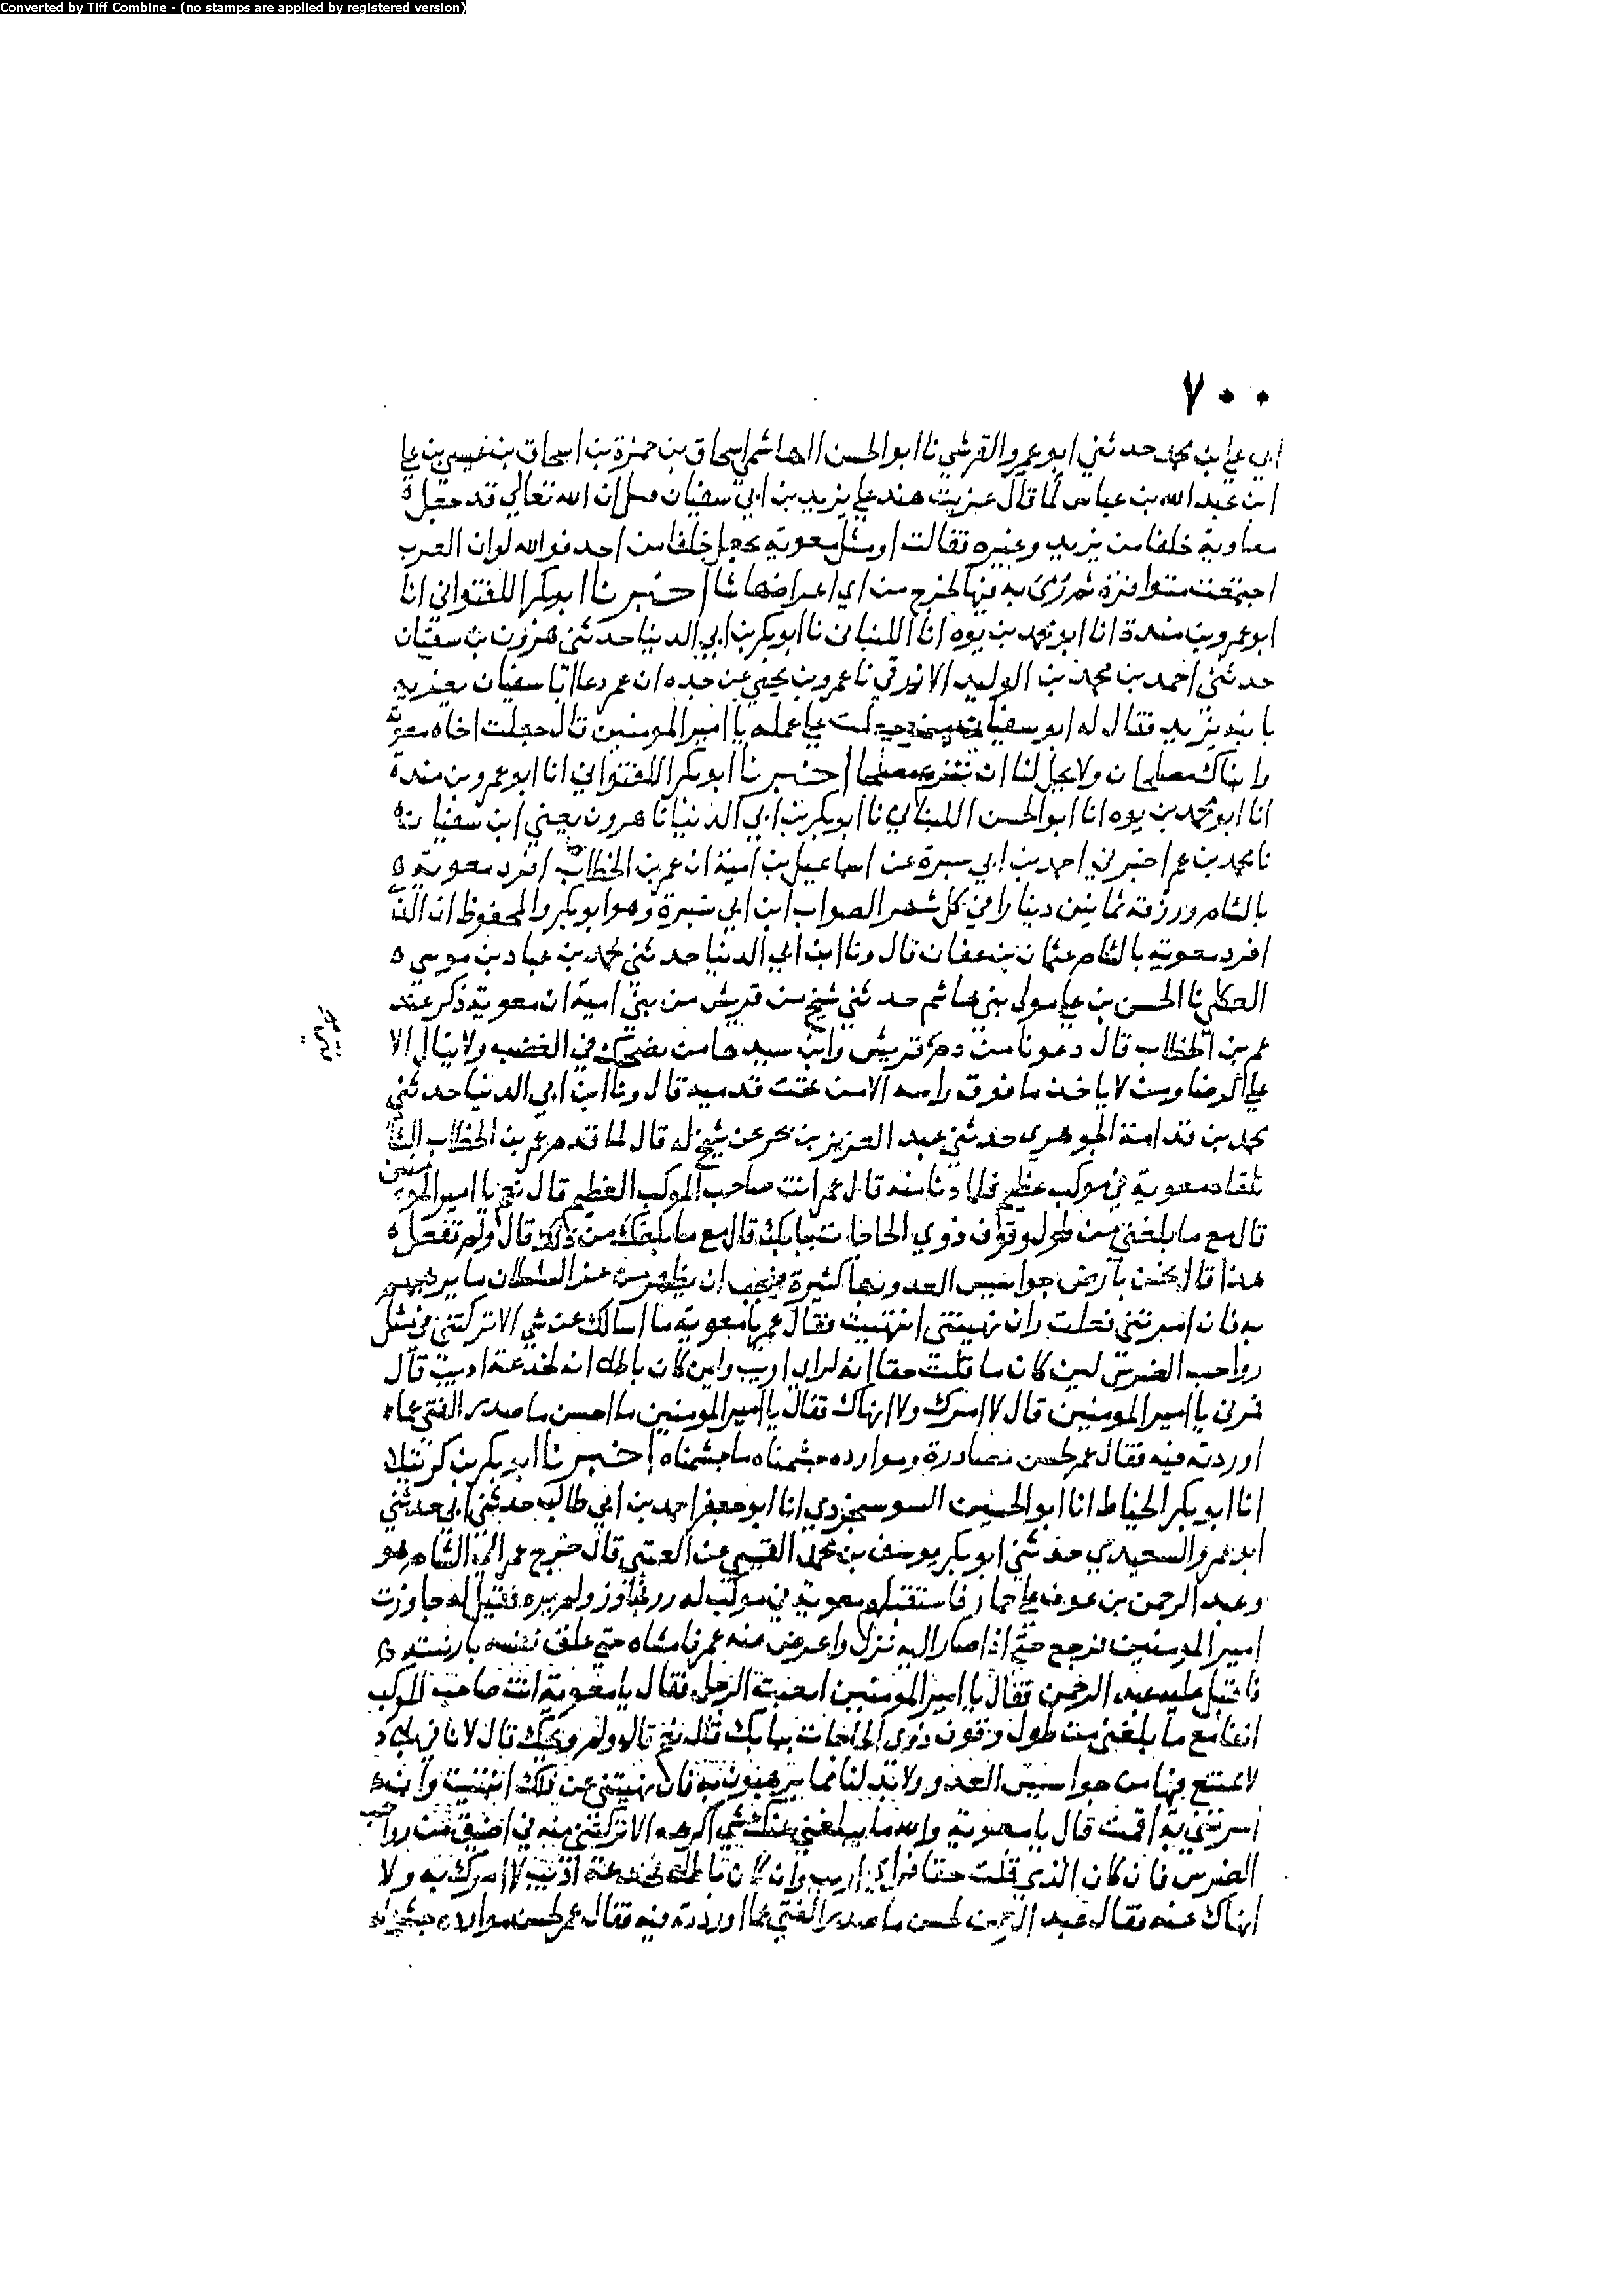 Converted by Tiff Combine - (no stamps are applied by registered version)
٧٠٠
ابي علي بن محمد حدثني ابو عمرو القرشي نا ابو الحسن الهاشمي اسحاق بن حمزة بن اسحاق بن عيسى بن علي
ابن عبد الله بن عباس لما قال عزيت هند علي يزيد بن ابي سفيان وقيل ان الله تعالى قد جعل
معاوية خلفا من يزيد وغيره فقالت او مثل معوية يجعل خلفا من احد فوالله لو ان العرب
اجتمعت متوافرة ثم رمي به فيها لخرج من اي اعراضها شا اخبرنا ابو بكر اللفتواني انا
ابو عمرو بن مندة انا ابو محمد بن يوه انا اللنباني نا ابو بكر بن ابي الدنيا حدثني هرون بن سفيان
حدثني احمد بن محمد بن الوليد الازرقي نا عمرو بن يحيى عن جده ان عمر دعا ابا سفيان يعزيه
بابنه يزيد فقال له ابو سفيان من جعلت علي عمله يا امير المومنين قال جعلت اخاه معوية
وابناك مصلحان ولا يحل لنا ان ننزع مصلحا اخبرنا ابو بكر اللفتواني انا ابو عمرو بن مندة
انا ابو محمد بن يوه انا ابو الحسن اللنباني نا ابو بكر بن ابي الدنيا نا هرون يعني ابن سفيان
نا محمد بن عمر اخبرني احمد بن ابي سبرة عن اسماعيل بن امية ان عمر بن الخطاب افرد معوية
بالشام ورزقه ثمانين دينارا في كل شهر الصواب ابن ابي سبرة وهو ابو بكر والمحفوظ ان الذي
افرد معوية بالشام عثمان بن عفان قال ونا ابن ابي الدنيا حدثني محمد بن عباد بن موسى
العكلي نا الحسن بن علي مولى بني هاشم حدثني شيخ من قريش من بني امية ان معوية ذكر عند
عمر بن الخطاب قال دعونا من ذم فتى قريش وابن سيدها من يضحك في الغضب ولا ينال الا
علي الرضا ومن لا ياخذ ما فوق راسه الا من تحت قدميه قال ونا ابن ابي الدنيا حدثني
محمد بن قدامة الجوهري حدثني عبد العزيز بن بحر عن شيخ له قال لما قدم عمر بن الخطاب الشام
تلقاه معوية في موكب عظيم فلما دنا منه قال عمر انت صاحب الموكب العظيم قال نعم يا امير المومنين
قال مع ما بلغني من طول وقوف ذوي الحاجات ببابك قال مع ما بلغك من ذلك قال ولم تفعل
هذا قال نحن بارض جواسيس العدو بها كثيرة فيجب ان يظهر من عز السلطان ما يرهبهم
به فان امرتني فعلت وان نهيتني انتهيت فقال عمر يا معوية ما اسالك عن شي الا تركتني في مثل
رواجب الضرس لين كان ما قلت حقا انه لراي اريب ولين كان باطلا انه لخدعة اديب قال
فمرني يا امير المومنين قال لا امرك ولا انهاك فقال يا امير المومنين ما احسن ما صدر الفتى عما
اوردته فيه فقال عمر لحسن مصادره وموارده جشمناه ما جشمناه اخبرنا ابو بكر بن كرتيلا
انا ابو بكر الخياط انا ابو الحسين السوسنجردي انا ابو جعفر احمد بن ابي طالب حدثني ابي حدثني
ابو عمرو السعيدي حدثني ابو بكر يوسف بن محمد القيسي عن العتبي قال خرج عمر الى الشام هو
وعبد الرحمن بن عوف علي حمار فاستقبلهم معوية في موكب له وزر فجاوز ولم يره فقيل له جاوزت
امير المومنين فرجع حتى اذا صار اليه نزل واعرض عنه عمر فامشاه حتى علق نفسه بارنبته
فاقبل عليه عبد الرحمن فقال يا امير المومنين اتعبت الرجل فقال يا معوية انت صاحب الموكب
انفا مع ما بلغني من طول وقوف ذوي الحاجات ببابك قال نعم قال ولم ويحك قال لانا في بلاد
لا نمتنع فيها من جواسيس العدو ولا بد لنا مما يرهبون به فان نهيتني عن ذلك انتهيت وان
امرتني به اقمت قال يا معوية والله ما يبلغني عنك شي اكرهه الا تركتني منه في اضيق من رواجب
الضرس فان كان الذي قلت حقا فراي اريب وان كان باطلا فخدعة اديب لا امرك به ولا
انهاك عنه فقال عبد الرحمن لحسن ما صدر الفتى عما اوردته فيه فقال عمر لحسن موارده جشمناه